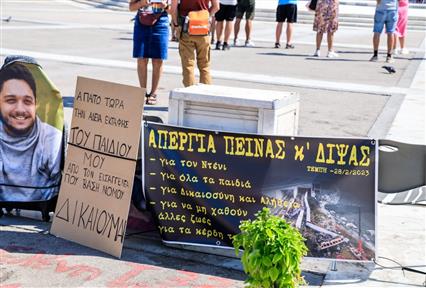 ΑΠΑΤΟ ΤΩΡΑ
ΤΗΝ ΑΔΕΙΑ ΕΚΤΑΦΗΣ
ΤΟΥ ΠΑΙΔΙΟΥ
ΜΟΥ
ΑΠΟ ΤΟΝ ΕΙΣΑΓΓΕΛΕΑ
ΠΟΥ ΒΑΣΗ ΝΟΜΟΥ
ΔΙΚΑΙΟΥΜΑΙ
ΑΠΕΡΓΙΑ ΠΕΙΝΑΣ κ' ΔΙΨΑΣ
ΤΕΜΠΗ -28/2/2023
- για τον Ντένι
- για όλα τα παιδιά
- για Δικαιοσύνη και Αλήθεια
- για να μη χαθούν
άλλες ζωές
- για τα κέρδη